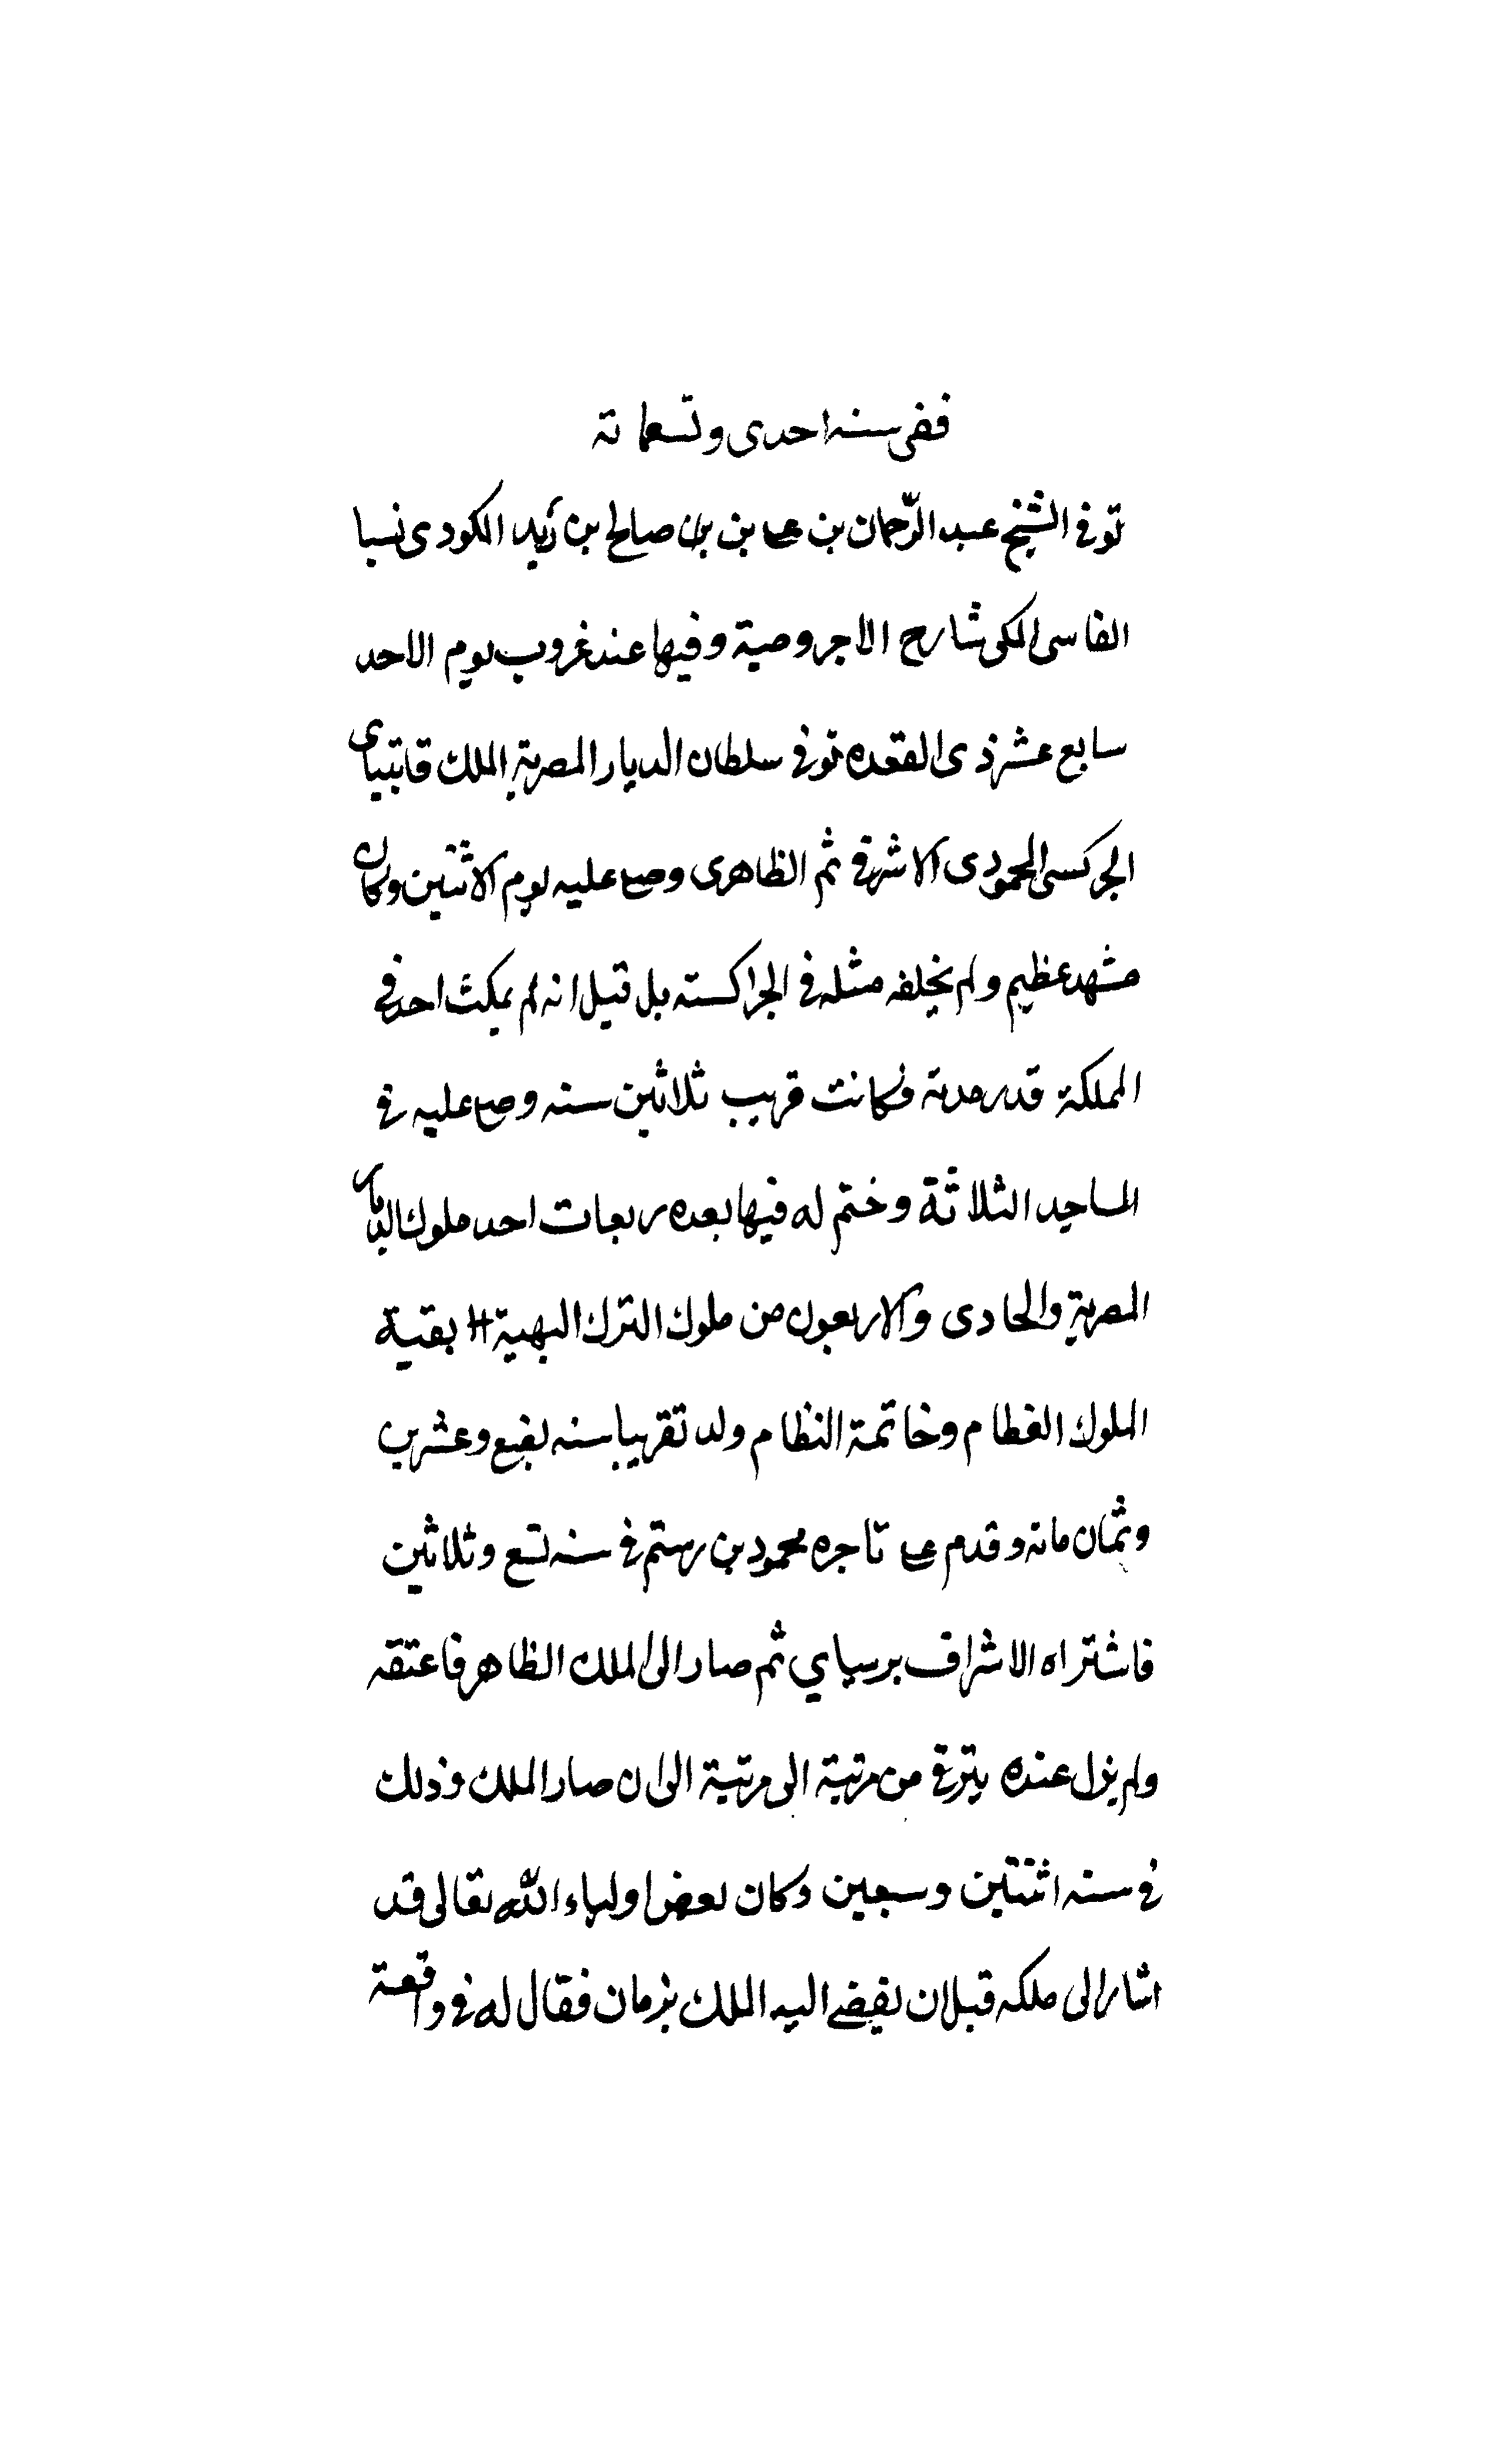 ففي سنه احدى وتسعمائة
توفي الشيخ عبد الرّحمان بن علي بن صالح بن زيد الكودى نسبا
الفاسى المكى شارح الاجروصية وفيها عند غروب يوم الاحد
سابع عشر ذى القعده توفي سلطان الديار المصرية الملك قايتباى
الجركسى المحمودى الاشرفي ثم الظاهرى وصلي عليه يوم الاثنين وكان
مشهد عظيم ولم يخلفه مثله في الجراكسته بل قيل انه لم يمكث احد في
المملكة قدر مدته فكانت قريب ثلاثين سنه وصلي عليه في
المساجد الثلاثة وختم له فيها بعده ربعات احد ملوك الديار
المصرية والحادى والاربعون من ملوك الترك البهية بقية
الملوك العظام وخاتمة النظام ولد تقريبا سنه بضع وعشرين
وثمان مائه وقدم علي تاجره محمود بن رستم في سنه تسع وثلاثين
فاشتراه الاشراف برسباي ثم صار الى الملك الظاهر فاعتقه
ولم يزل عنده يترقي من مرتبة الى مرتبة الى ان صار الملك وذلك
في سنه اثنتين وسبعين وكان بعض اولياء الله تعالى قد
اشار الى ملكه قبل ان يفضي اليه الملك بزمان فقال له في واقعة